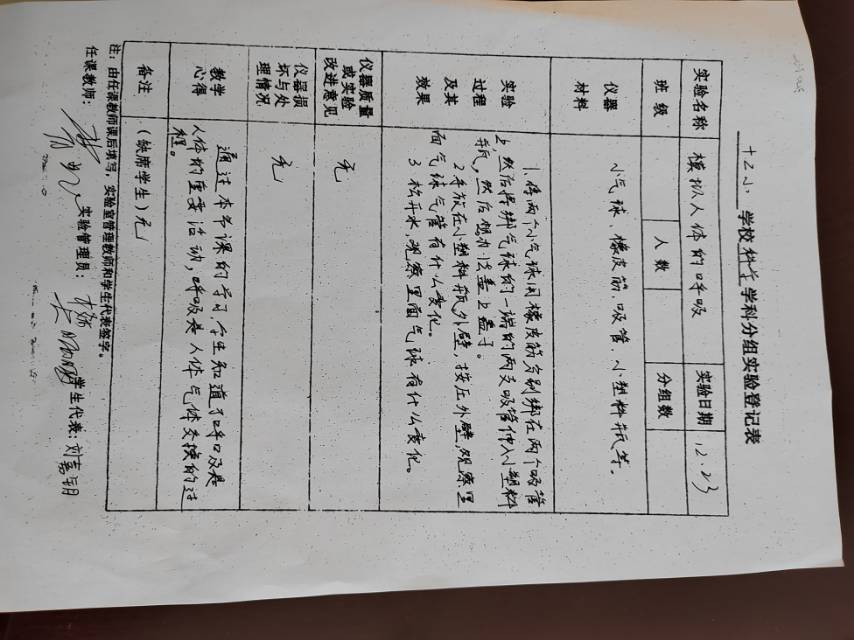 十二小 学校 科学 学科分组实验登记表
实验名称 模拟人体的呼吸 实验日期 12.23
班级 人数 分组数
仪器材料 小气球、橡皮筋、吸管、小塑料瓶等。
实验过程及其效果
1. 将两个小气球用橡皮筋分别绑在两个吸管
上然后将绑气球的一端的两支吸管伸入小塑料
瓶,然后想办法盖上盖子。
2 手放在小塑料瓶外壁,按压外壁,观察里
面气球气管有什么变化。
3 松开水,观察里面气球有什么变化。
仪器质量或实验改进意见 无
仪器损坏与处理情况 无
教学心得
通过本节课的学习,学生知道了呼吸是
人体的重要活动,呼吸是人体气体交换的过
程。
备注 (缺席学生)无
注:由任课教师课后填写,实验室管理教师和学生代表签字。
任课教师: 实验管理员: 学生代表:刘嘉玥